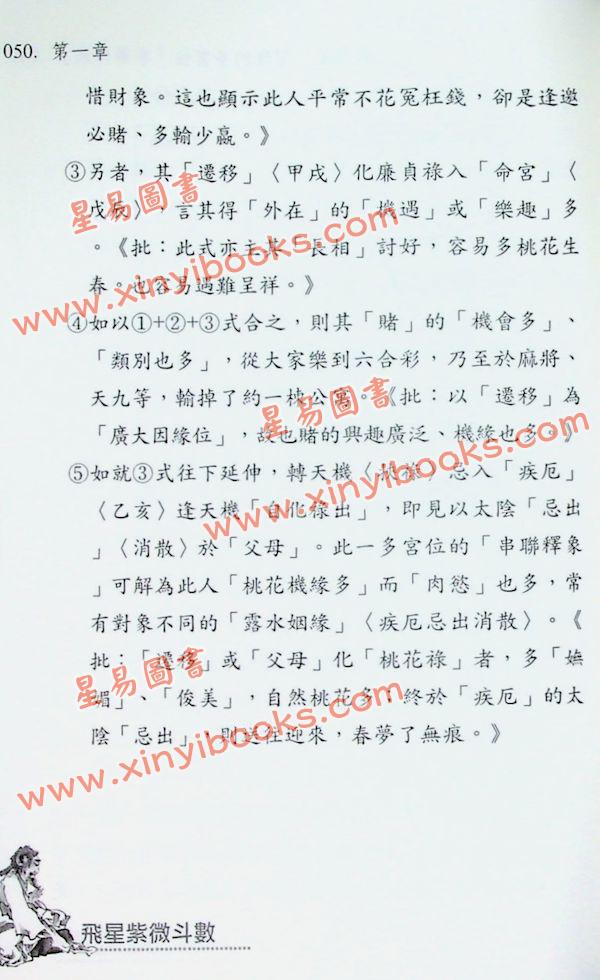 050. 第一章
惜財象。這也顯示此人平常不花冤枉錢，卻是逢邀
必賭、多輸少贏。》
③另者，其「遷移」〈甲戌〉化廉貞祿入「命宮」〈
戊辰〉，言其得「外在」的「機遇」或「樂趣」多
。《批：此式亦主其「長相」討好，容易多桃花生
春。也容易遇難呈祥。》
④如以①+②+③式合之，則其「賭」的「機會多」、
「類別也多」，從大家樂到六合彩，乃至於麻將、
天九等，輸掉了約一棟公寓。《批：以「遷移」為
「廣大因緣位」，故也賭的興趣廣泛、機緣也多。》
⑤如就③式往下延伸，轉天機〈祿〉忌入「疾厄」
〈乙亥〉逢天機「自化祿出」，即見以太陰「忌出
」〈消散〉於「父母」。此一多宮位的「串聯釋象
」可解為此人「桃花機緣多」而「肉慾」也多，常
有對象不同的「露水姻緣」〈疾厄忌出消散〉。《
批：「遷移」或「父母」化「桃花祿」者，多「嫵
媚」、「俊美」，自然桃花多；終於「疾厄」的太
陰「忌出」，則送往迎來，春夢了無痕。》
飛星紫微斗數
星易圖書
www.xinyibooks.com
星易圖書
www.xinyibooks.com
星易圖書
www.xinyibooks.com